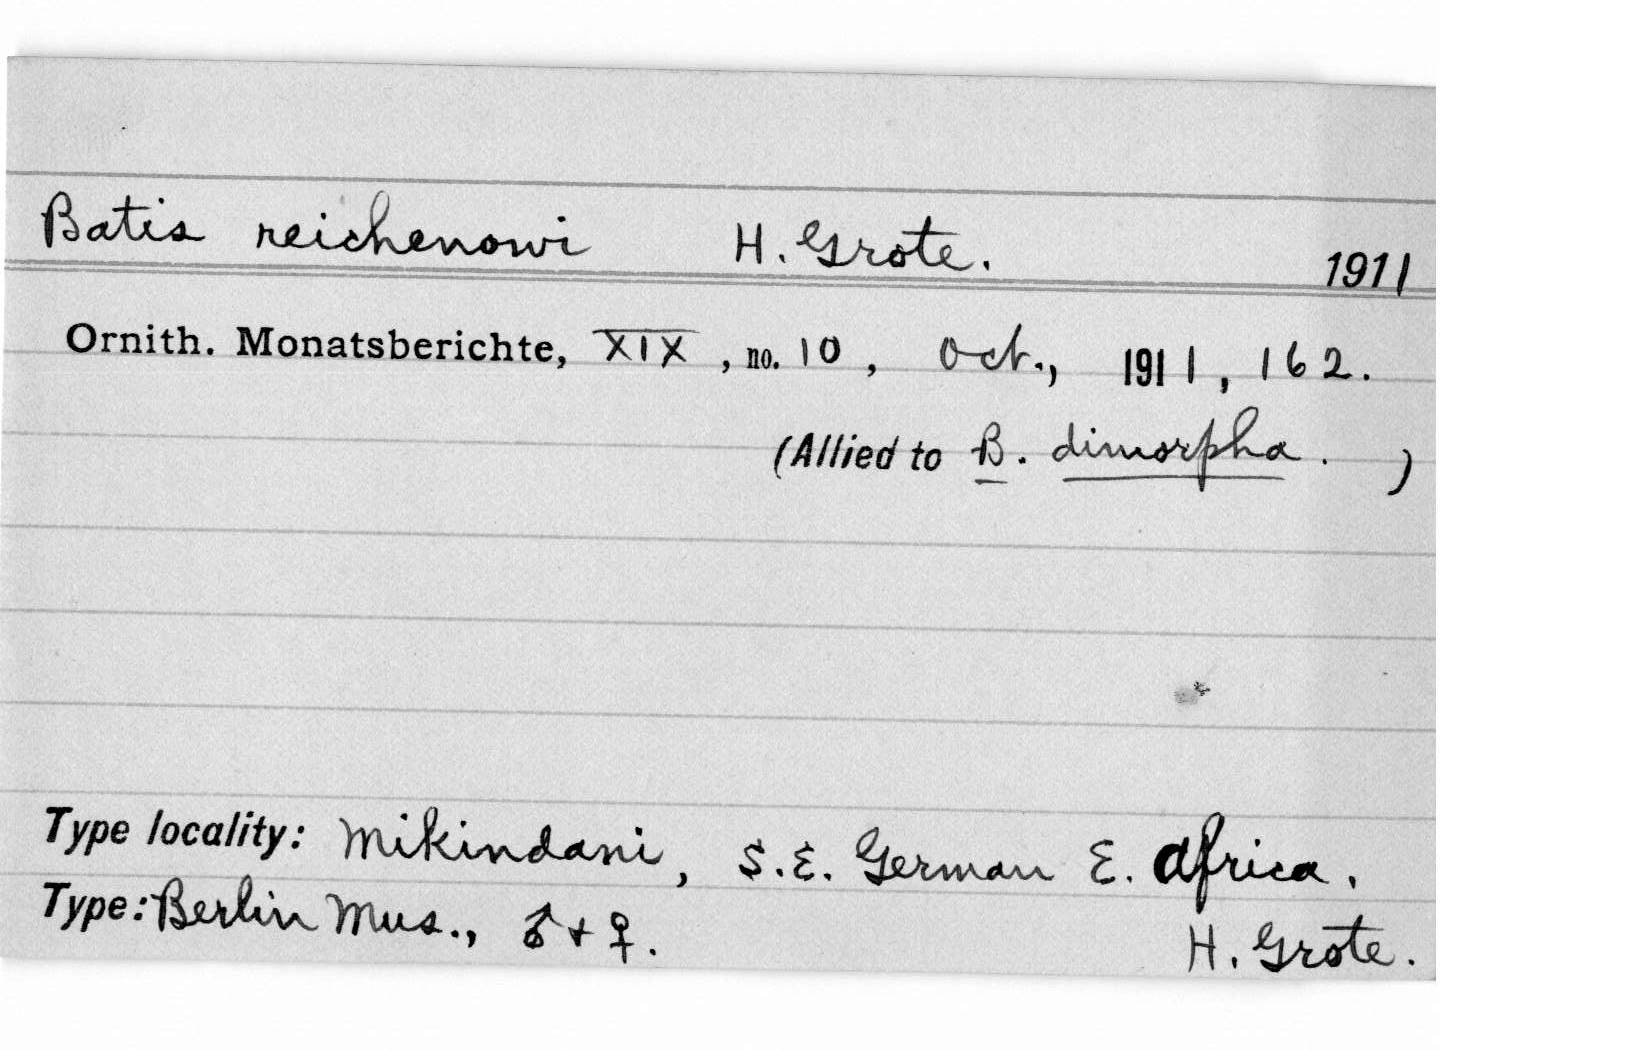 Batis reichenowi H. Grote. 1911
Ornith. Monatsberichte, XIX, no. 10, Oct., 1911, 162.
(Allied to B. dimorpha. )
Type locality: Mikindani, S.E. German E. Africa.
Type: Berlin Mus., ♂ + ♀. H. Grote.